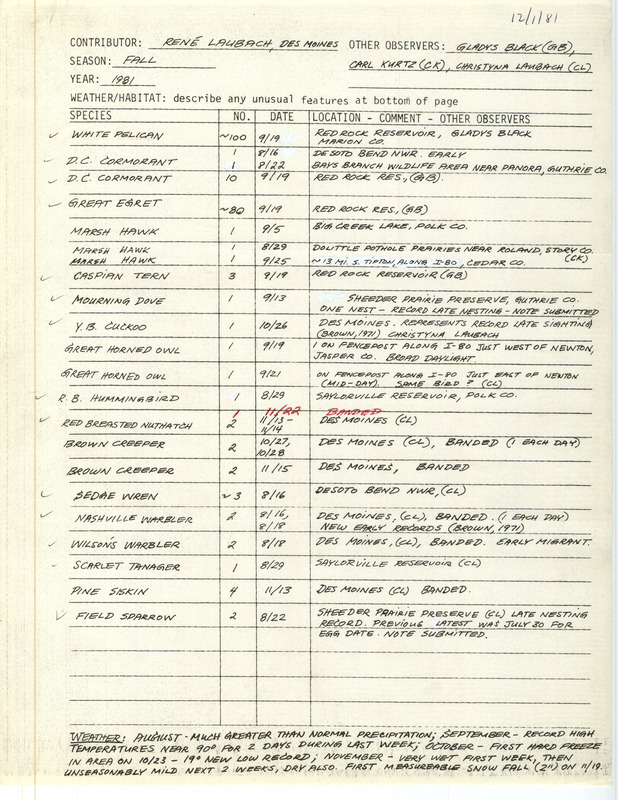 12/1/81
CONTRIBUTOR: RENÉ LAUBACH, DES MOINES OTHER OBSERVERS: GLADYS BLACK (GB),
SEASON: FALL CARL KURTZ (CK), CHRISTYNA LAUBACH (CL)
YEAR: 1981
WEATHER/HABITAT: describe any unusual features at bottom of page
SPECIES NO. DATE LOCATION - COMMENT - OTHER OBSERVERS
✓ WHITE PELICAN ~100 9/19 RED ROCK RESERVOIR, GLADYS BLACK
MARION CO.
1 8/16 DESOTO BEND NWR. EARLY
✓ D.C. CORMORANT 1 8/22 BAYS BRANCH WILDLIFE AREA NEAR PANORA, GUTHRIE CO.
✓ D.C. CORMORANT 10 9/19 RED ROCK RES., (GB).
✓ GREAT EGRET ~80 9/19 RED ROCK RES., (GB)
MARSH HAWK 1 9/5 BIG CREEK LAKE, POLK CO.
MARSH HAWK 1 8/29 DOLITTLE POTHOLE PRAIRIES NEAR ROLAND, STORY CO.
(CK)
MARSH HAWK 1 9/25 ~13 MI. S. TIPTON, ALONG I-80, CEDAR CO.
✓ CASPIAN TERN 3 9/19 RED ROCK RESERVOIR (GB)
✓ MOURNING DOVE 1 9/13 SHEEDER PRAIRIE PRESERVE, GUTHRIE CO.
ONE NEST - RECORD LATE NESTING - NOTE SUBMITTED
✓ Y.B. CUCKOO 1 10/26 DES MOINES. REPRESENTS RECORD LATE SIGHTING
(BROWN, 1971) CHRISTYNA LAUBACH
GREAT HORNED OWL 1 9/19 1 ON FENCEPOST ALONG I-80 JUST WEST OF NEWTON,
JASPER CO. BROAD DAYLIGHT
GREAT HORNED OWL 1 9/21 ON FENCEPOST ALONG I-80 JUST EAST OF NEWTON
(MID-DAY). SAME BIRD? (CL)
✓ R.B. HUMMINGBIRD 1 8/29 SAYLORVILLE RESERVOIR, POLK CO.
1 11/22 BANDED
RED BREASTED NUTHATCH 2 11/13 - 11/14 DES MOINES (CL)
BROWN CREEPER 2 10/27, 10/28 DES MOINES (CL), BANDED (1 EACH DAY)
BROWN CREEPER 2 11/15 DES MOINES, BANDED
✓ SEDGE WREN ~3 8/16 DESOTO BEND NWR, (CL)
✓ NASHVILLE WARBLER 2 8/16, 8/18 DES MOINES, (CL). BANDED. (1 EACH DAY)
NEW EARLY RECORDS (BROWN, 1971)
✓ WILSON'S WARBLER 2 8/18 DES MOINES, (CL), BANDED. EARLY MIGRANT.
✓ SCARLET TANAGER 1 8/29 SAYLORVILLE RESERVOIR (CL)
PINE SISKIN 4 11/13 DES MOINES (CL) BANDED.
✓ FIELD SPARROW 2 8/22 SHEEDER PRAIRIE PRESERVE (CL) LATE NESTING
RECORD. PREVIOUS LATEST WAS JULY 30 FOR
EGG DATE. NOTE SUBMITTED.
WEATHER: AUGUST - MUCH GREATER THAN NORMAL PRECIPITATION; SEPTEMBER - RECORD HIGH
TEMPERATURES NEAR 90° FOR 2 DAYS DURING LAST WEEK; OCTOBER - FIRST HARD FREEZE
IN AREA ON 10/23 - 19° NEW LOW RECORD; NOVEMBER - VERY WET FIRST WEEK, THEN
UNSEASONABLY MILD NEXT 2 WEEKS, DRY ALSO. FIRST MEASUREABLE SNOW FALL (2") ON 11/19.